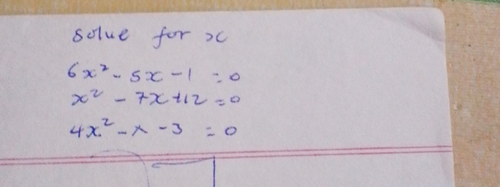 solve for x
6x² - 5x - 1 = 0
x² - 7x + 12 = 0
4x² - x - 3 = 0